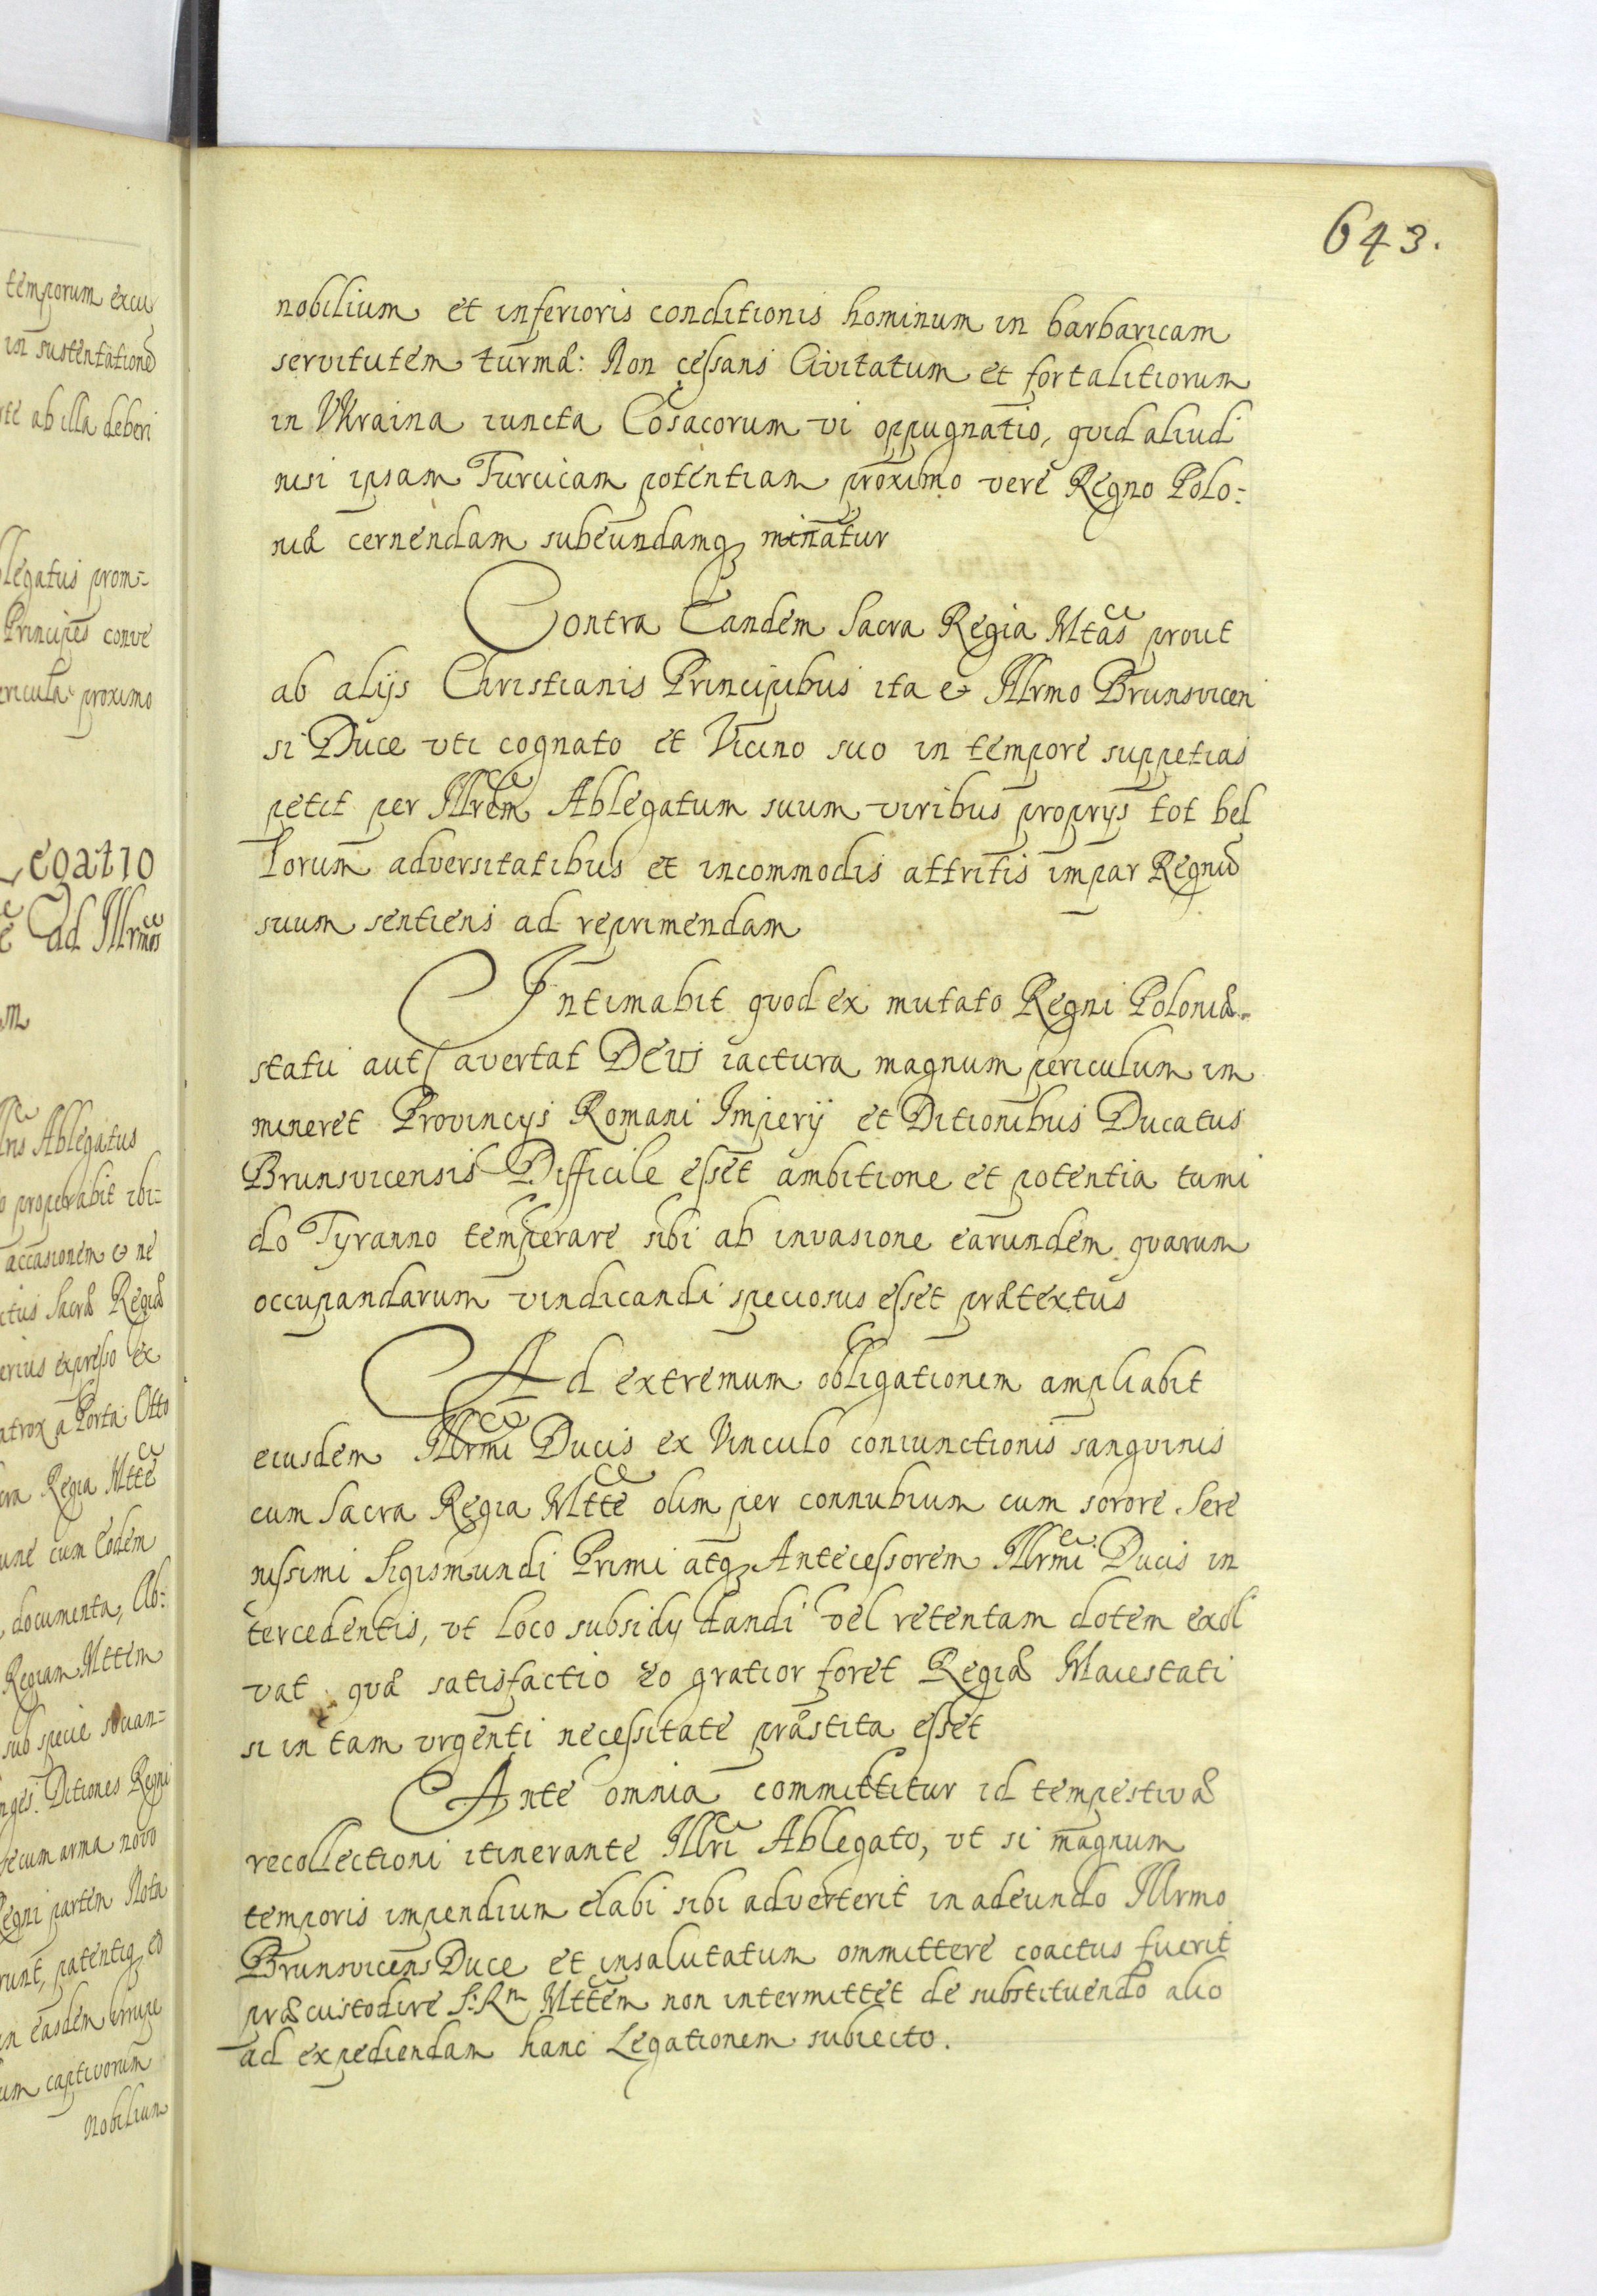 643.
nobilium et inferioris conditionis hominum in barbaricam
servitutem turmæ: Non cessans Civitatum et fortalitiorum
in Vkraina iuncta Cosacorum vi oppugnatio, quid aliud
nisi ipsam Turcicam potentiam proximo vere Regno Polo=
niæ cernendam subeundamq minatur
Contra Eandem Sacra Regia Mtas prout
ab alijs Christianis Principibus ita et Illrmo Brunsvicen
si Duce vti cognato et Vicino suo in tempore suppetias
petit per Illrem Ablegatum suum viribus proprijs tot bel
lorum adversitatibus et incommodis attritis impar Regnũ
suum sentiens ad reprimendam
Intimabit quod ex mutato Regni Poloniæ
statu aut avertat Deus iactura magnum periculum im
mineret Provincijs Romani Imperij et Ditionibus Ducatus
Brunsvicensis Difficile esset ambitione et potentia tumi
do Tyranno temperare sibi ab invasione earundem quarum
occupandarum vindicandi speciosus esset prætextus
Ad extremum obligationem ampliabit
eiusdem Illrmi Ducis ex Vinculo coniunctionis sanguinis
cum Sacra Regia Mtte olim per connubium cum sorore Sere
nissimi Sigismundi Primi atq Antecessorem Illrmi Ducis in
tercedentis, vt loco subsidij dandi vel retentam dotem exol
vat quæ satisfactio eo gratior foret Regiæ Maiestati
si in tam vrgenti necessitate præstita esset
Ante omnia committitur id tempestivæ
recollectioni itinerante Illri Ablegato, vt si magnum
temporis impendium elabi sibi adverterit in adeundo Illrmo
Brunsvicens Duce et insalutatum ommittere coactus fuerit
præcustodire S: Rm Mttem non intermittet de substituendo alio
ad expediendam hanc Legationem subiecto.
temporum excu
in sustentationẽ
ab illa deberi
blegatus prom=
Principes conve
ericula proximo
Legatio
ad Illrmos
m
Ablegatus
properabit ibi=
accasionem et ne
ctus Sacræ Regiæ
erius expresso ex
atrox a Porta Otto
cra Regia Mtte
cum Eodem
documenta, Ab:
Regiam Mttem
sub specie
Ditiones Regni
secum arma novo
Regni partem Nota
runt, potentiq eo
in easdem
um captivorum
Nobilium